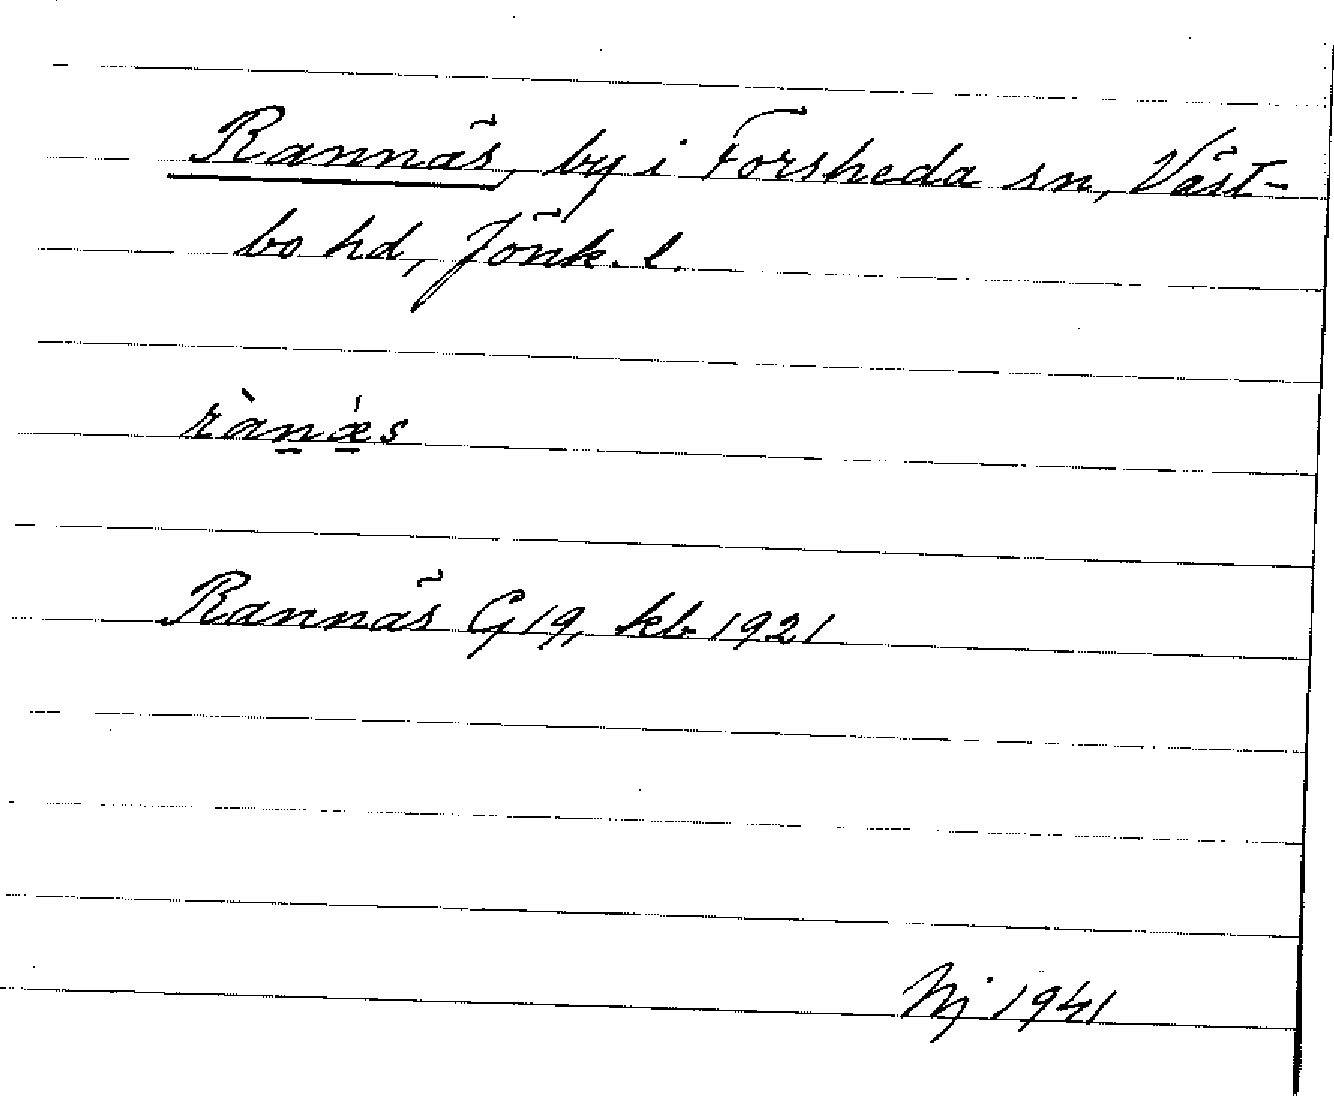 Rannäs, by i Forsheda sn, Väst-
bo hd, Jönk. l.
ràn̲ǽ̲s
Rannäs G19, kb 1921
Nj 1941